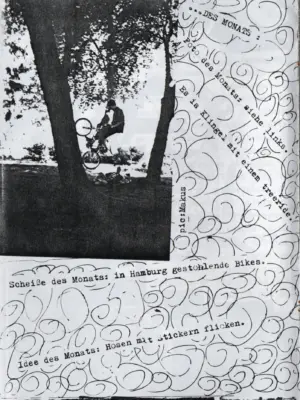 ...DES MONATS :
des Monats: siehe links.
Es is Klingmi mit einem treeride.
pic:Makus
Scheiße des Monats: in Hamburg gestohlende Bikes.
Idee des Monats: Hosen mit Stickern flicken.